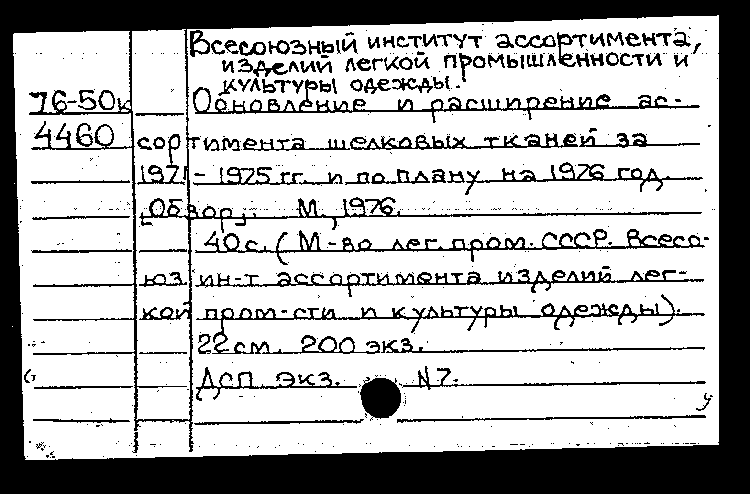 Всесоюзный институт ассортимента,
изделий легкой промышленности и
культуры одежды.
76-50к Обновление и расширение ас-
4460 сортимента шелковых тканей за
1971-1975 гг. и по плану на 1976 год.
[Обзор]. М., 1976.
40с. (М-во лег. пром. СССР. Всесо-
юз. ин-т ассортимента изделий лег-
кой пром-сти и культуры одежды).
22 см. 200 экз.
ДСП экз. N7.
у